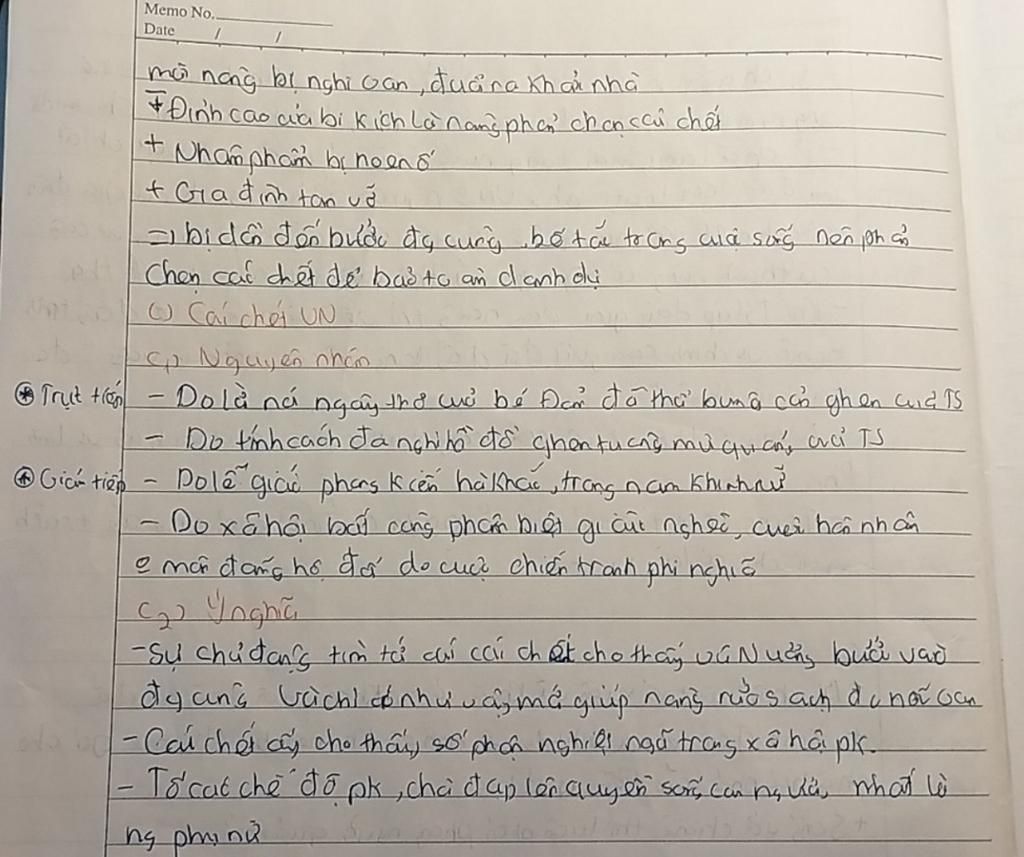 Memo No.
Date / /
mà nàng bị nghi oan, đuổi ra khỏi nhà
+ Đỉnh cao của bi kịch là nàng phải chọn cái chết
+ Nhân phẩm bị hoen ố
+ Gia đình tan vỡ
=> bị dồn đến bước đg cùng, bế tắc trong cuộc sống nên phải
chọn cái chết để bảo toàn danh dự
c) Cái chết VN
c1) Nguyên nhân
⊛ Trực tiếp - Do lời nói ngây thơ của bé Đản đã thổi bùng cơn ghen của TS
- Do tính cách đa nghi hồ đồ ghen tuông mù quáng của TS
⊛ Gián tiếp - Do lễ giáo phong kiến hà khắc, trọng nam khinh nữ
- Do xã hội bất công phân biệt giàu nghèo, cuộc hôn nhân
ko môn đăng hộ đối do cuộc chiến tranh phi nghĩa
c2) Ý nghĩa
- Sự chủ động tìm tới cái chết cho thấy Vũ Nương bước vào
đg cùng và chỉ có như vậy mới giúp nàng rửa sạch đc nỗi oan
- Cái chết ấy cho thấy số phận nghiệt ngã trong xã hội pk.
- Tố cáo chế độ pk, chà đạp lên quyền sống con người, nhất là
ng phụ nữ